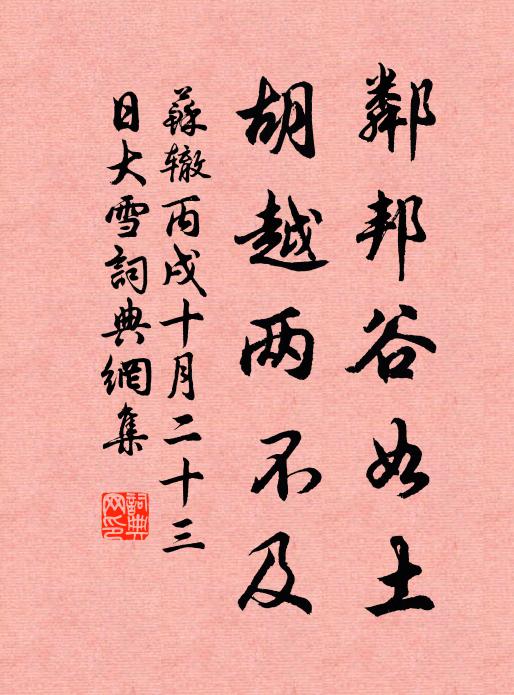 鄰邦谷如土
胡越两不及
蘇辙丙戌十月二十三
日大雪詞典網集
詞典网印